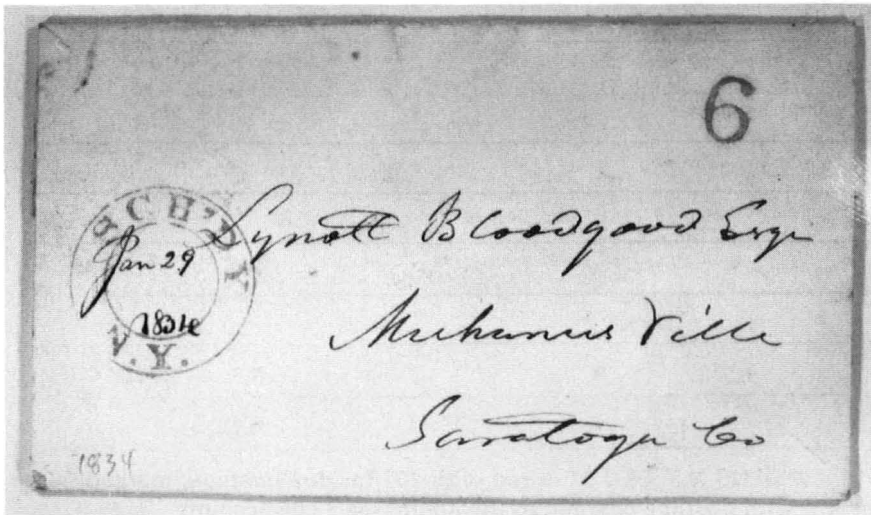 6
SCH'DY
Jan 29
1834
N.Y.
Lynott Bloodgood Esqr
Mechanics Ville
Saratoga Co
1834